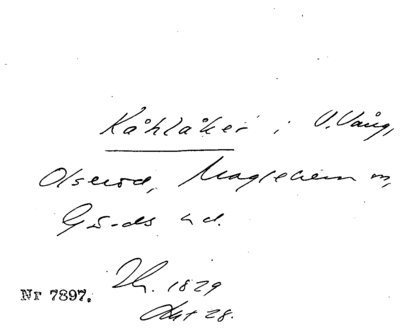 Kåhlåker i V. Vång,
Olseröd, Maglehem sn,
Gärds hd.
Nr 7897.
1829
Akt 28.